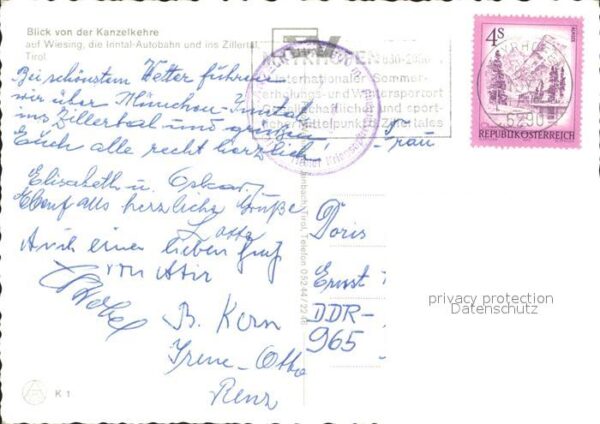 Blick von der Kanzelkehre
auf Wiesing, die Inntal-Autobahn und ins Zillertal,
Tirol
Bei schönstem Wetter führen
wir über München-Inntal
ins Zillertal und grüßen
Euch alle recht herzlich!
Elisabeth u. Oskar
Ebenfalls herzliche Grüße
Lotte
Auch einen lieben Gruß
von
B. Kern
Irene-Otto
Renz
K 1
MAYRHOFEN 630-2050
Internationaler Sommer-
erholungs- und Wintersportort
Gesellschaftlicher und sport-
licher Mittelpunkt d. Zillertales
6290
4S
REPUBLIK ÖSTERREICH
Tirol, Telefon 05244/22
Frau
Doris
Ernst
DDR-
965
privacy protection
Datenschutz